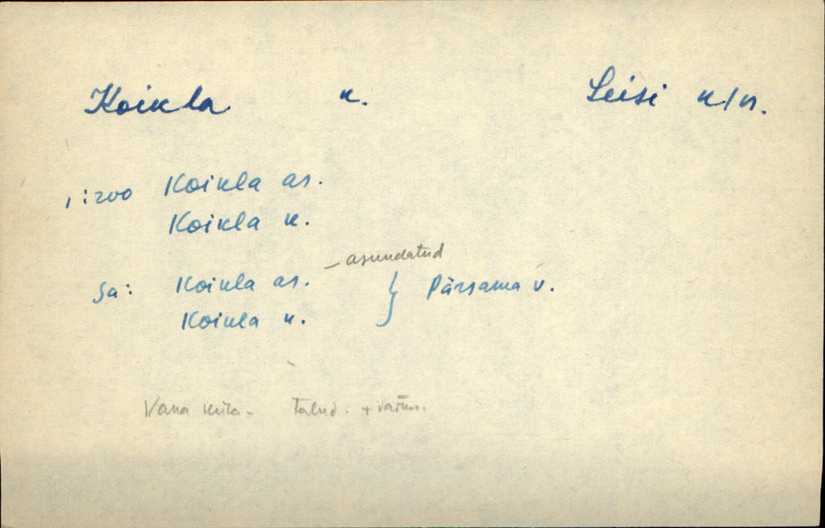 Koikla k. Leisi k/n.
1:200 Koikla as.
Koikla k.
Sa: Koikla as. – asundatud
Koikla k. } Pärsama v.
Vana küla - Talud. +